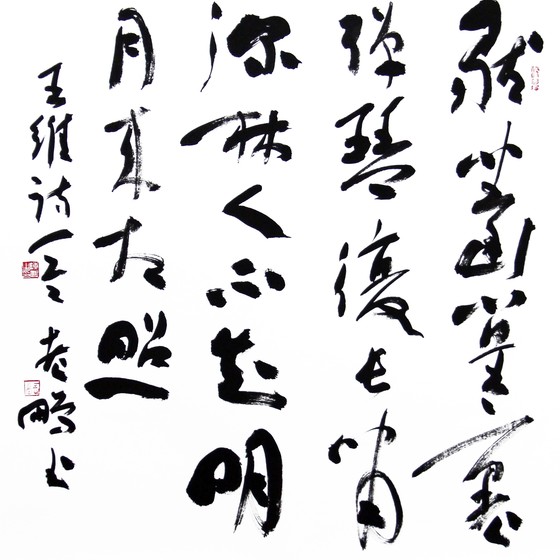 獨坐幽篁裏
弹琴復长啸
深林人不知明
月来相照
王维诗一首 鹏书